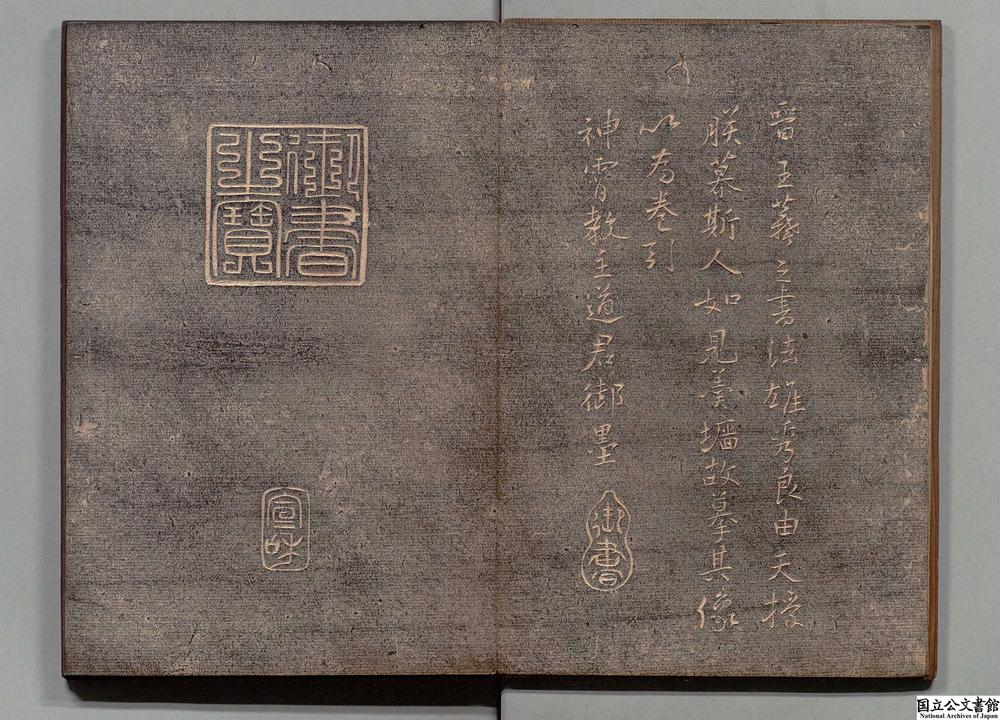 晉王羲之書法雄秀良由天授
朕慕斯人如見羹墻故摹其像
以為卷引
神霄教主道君御墨
御書
御書
之寶
宣和
国立公文書館
National Archives of Japan